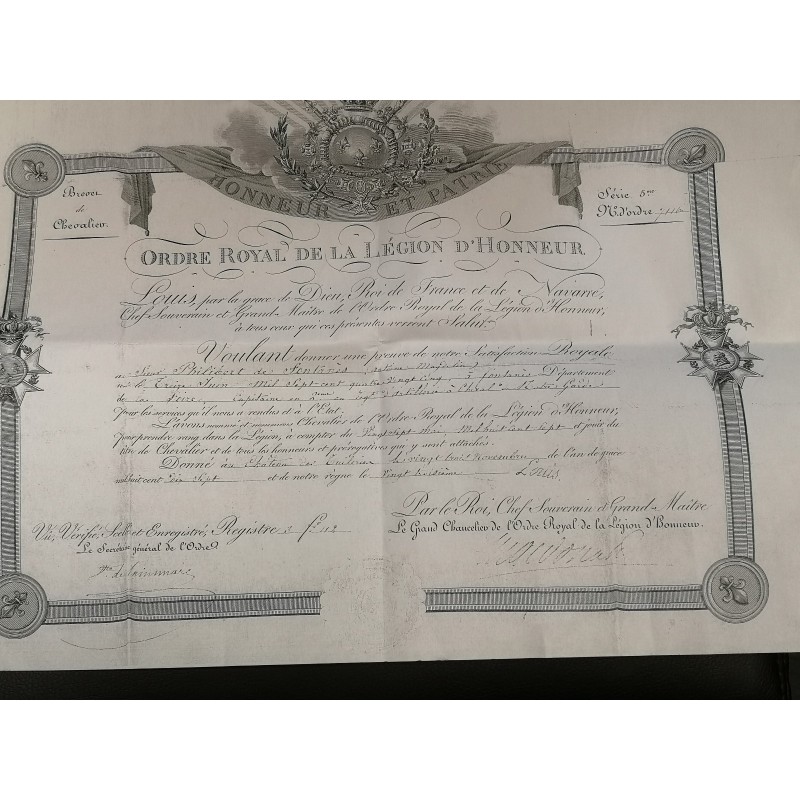 HONNEUR ET PATRIE
Brevet
de
Chevalier.
Série 5me
N.º d'ordre
ORDRE ROYAL DE LA LÉGION D'HONNEUR.
Louis, par la grace de Dieu, Roi de France et de Navarre,
Chef Souverain et Grand-Maître de l'Ordre Royal de la Légion d'Honneur,
à tous ceux qui ces présentes verront Salut.
Voulant donner une preuve de notre Satisfaction Royale
au Sieur Philibert de Fontanès
né le Treize Juin Mil Sept-cent quatre vingt cinq à Département
de la Loire, Capitaine en 2eme au regt d'artillerie à Cheval de la Garde
pour les services qu'il nous a rendus et à l'Etat.
L'avons nommé et nommons Chevalier de l'Ordre Royal de la Légion d'Honneur,
pour prendre rang dans la Légion, à compter du Vingt sept Mil huit cent sept et jouir du
titre de Chevalier et de tous les honneurs et prérogatives qui y sont attachés.
Donné au Château des Tuileries le vingt trois Novembre de l'an de grâce
mil huit cent dix sept et de notre règne le Vingt troisième Louis
Par le Roi, Chef Souverain et Grand-Maître
Le Grand Chancelier de l'Ordre Royal de la Légion d'Honneur.
Vu, Vérifié, Scellé et Enregistré, Registre 3 fo
Le Secrétaire général de l'Ordre